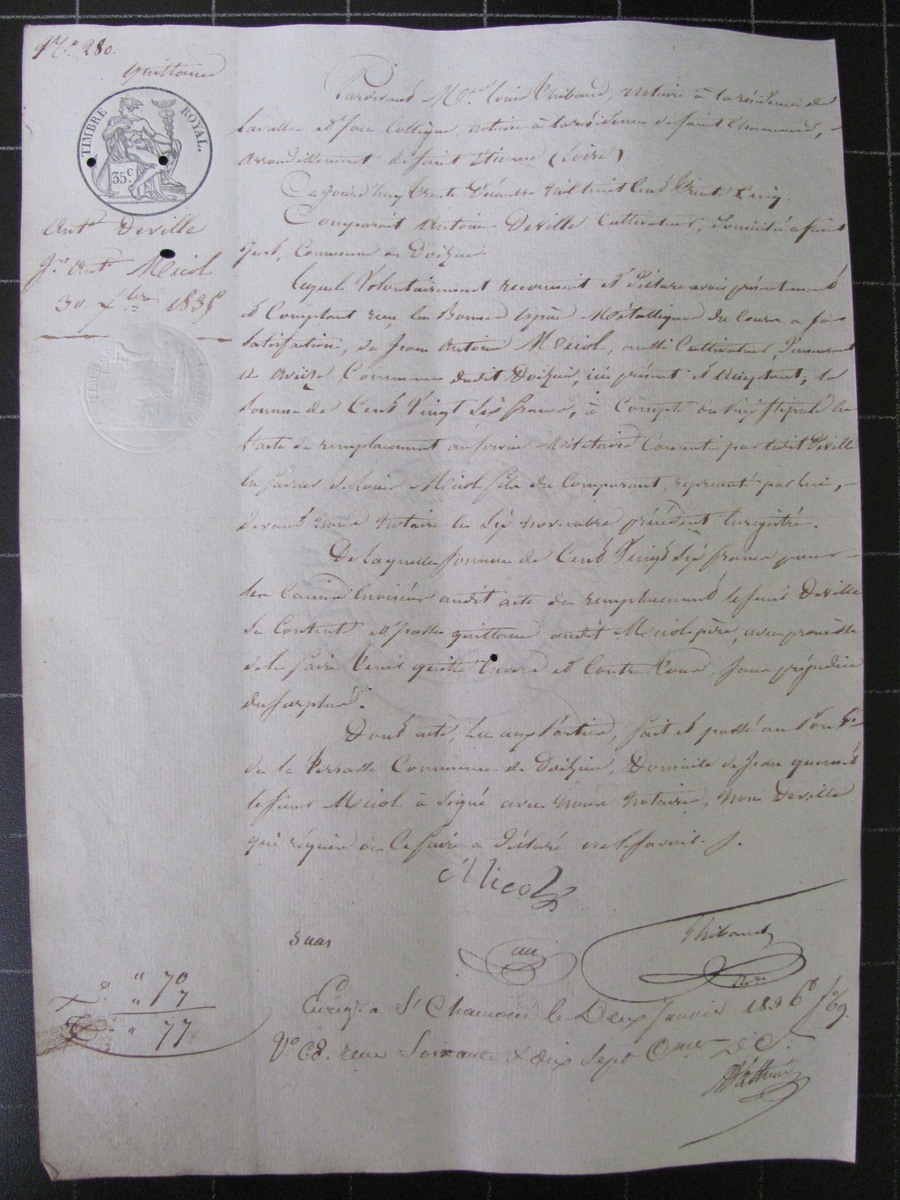 N.o 280.
quittance
TIMBRE ROYAL.
35.c
Ant.e Deville
Jn. Ant.e Micol
30 Xbre 1835
Pardevant M.e Louis Thibaud, notaire à la résidence de
Lavalla et son Collègue, notaire à la résidence de Saint Chamond,
arrondissement de Saint Etienne (Loire).
Ce jourd'huy trente Décembre mil huit cent trente cinq,
Comparait Antoine Deville Cultivateur, domicilié à Saint
Just, Commune de Doizieu.
Lequel Volontairement reconnait et déclare avoir présentement
et Comptant reçu en Bonnes Espèces Métalliques du Cours a sa
Satisfaction, de Jean Antoine Micol, aussi Cultivateur, demeurant
Commune dudit Doizieu, ici présent et acceptant, la
Somme de Cent Vingt Six francs, à Compte du Prix stipulé en
l'acte de remplacement au service Militaire Consenti par ledit Deville
en faveur de Louis Micol fils du Comparant, représenté par lui,
devant nous Notaire le Six Novembre précédent Enregistré.
De laquelle Somme de Cent Vingt Six francs pour
les Causes énoncées audit acte de remplacement le sieur Deville
Se Contente et passe quittance audit Micol père, avec promesse
de le faire tenir quitte Envers et Contre tous, Sans préjudice
du surplus.
Dont acte, Lu aux Parties, fait et passé au
de la Commune de Doizieu, Domicile de Jean
le sieur Micol à Signé avec nous Notaires, non Deville
qui requis de Ce faire a déclaré ne le savoir.
Micol
Thibaud
Enreg. à St Chamond le Deux Janvier 1836 f.o 69.
V.o C8. reçu Soixante & dix Sept Cmes D C.
" 70
" 7
" 77